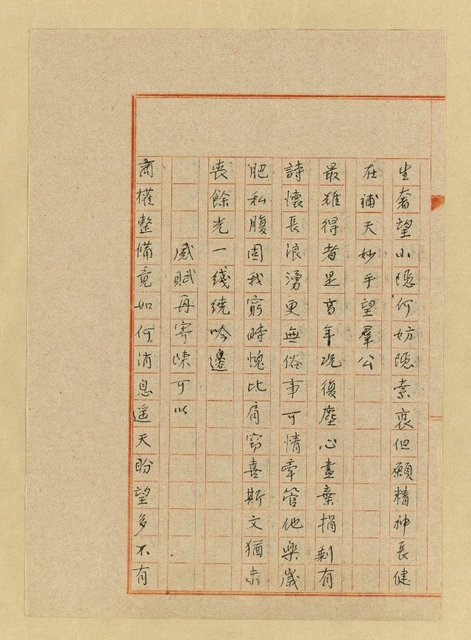 生奢望小隱何妨隱素衷但願精神長健
在補天妙手望羣公
最難得者是百年況復塵心盡棄捐剩有
詩懷長浪湧更無俗事可情牽管他樂歲
肥私腹因我窮時愧比肩竊喜斯文猶未
喪餘光一綫繞吟邊
感賦再寄陳可以
商權整備竟如何消息遥天盼望多不有